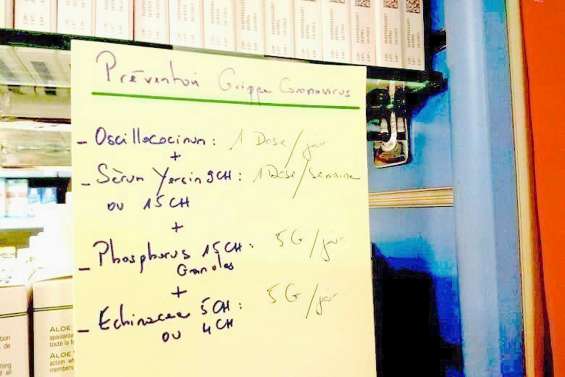 Prévention Grippe Coronavirus
- Oscillococinum : 1 Dose/jour
+
- Sérum Yersin 9CH : 1 Dose/Semaine
ou 15CH
+
- Phosphorus 15CH : 5G/jour
Granules
+
- Echinacea 5CH : 5G/jour
ou 4CH
ALOE
ALOE